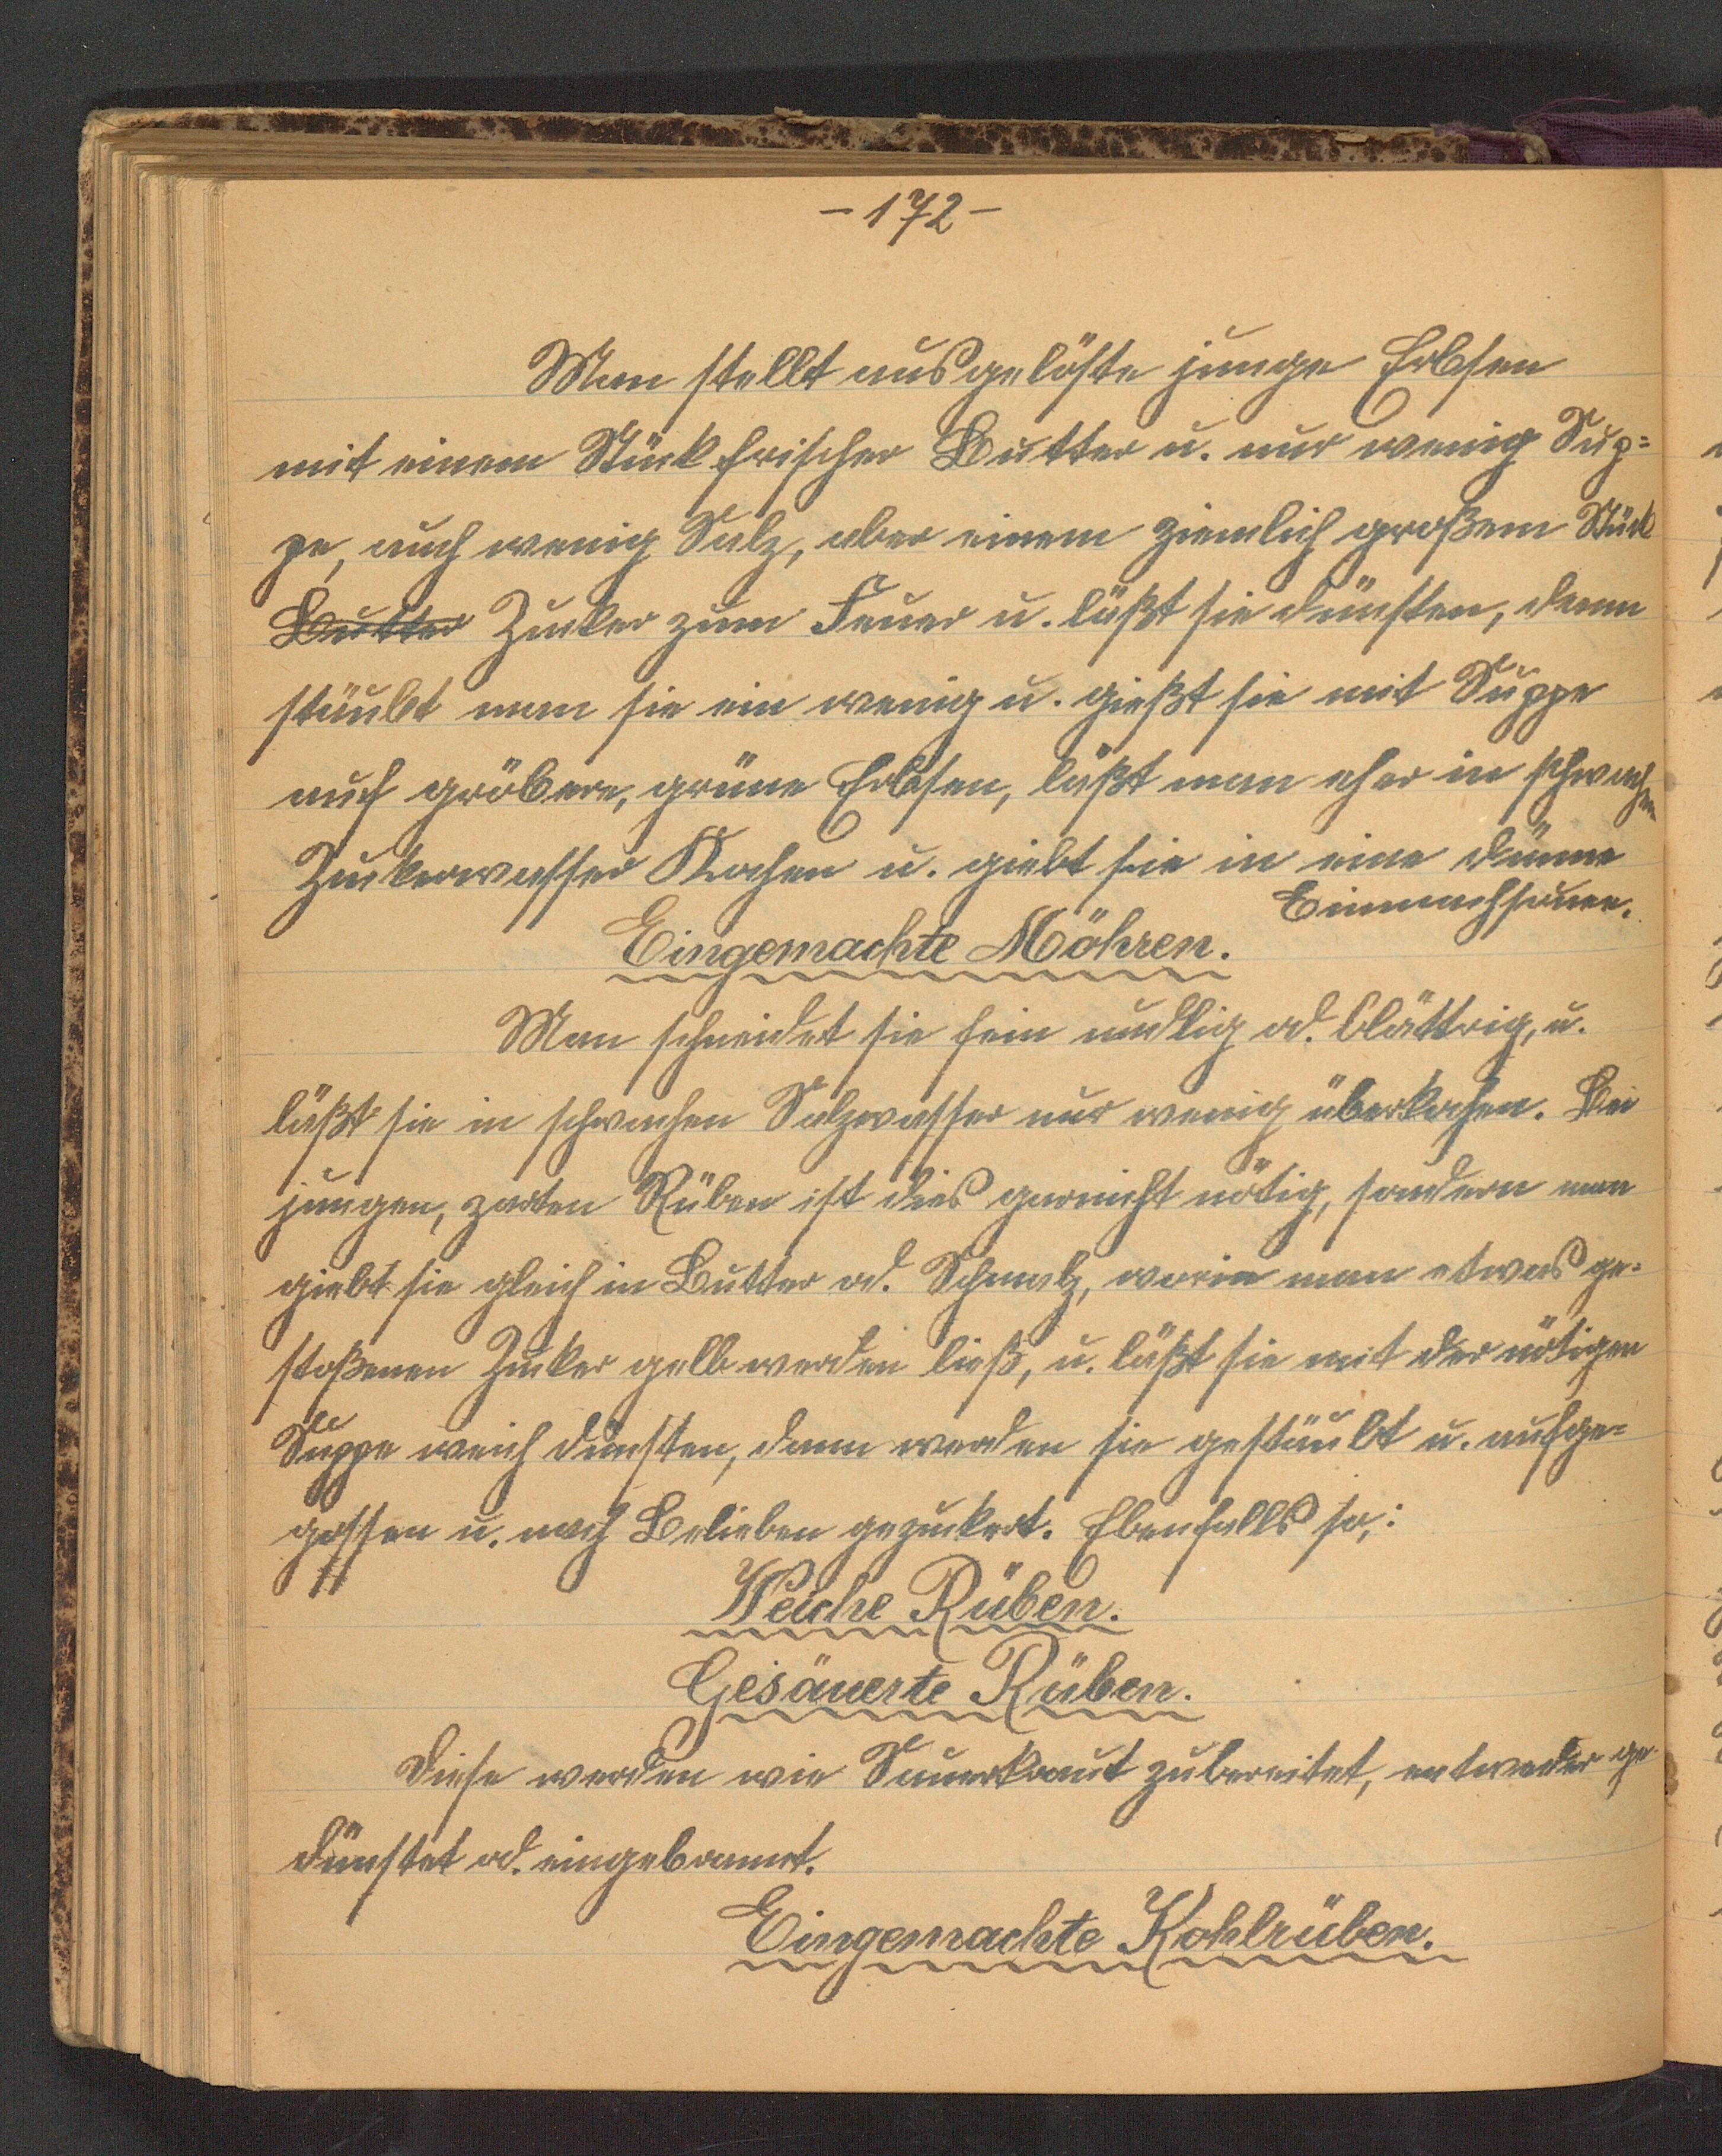 - 172 -
Man stellt ausgelöste junge Erbsen
mit einem Stück frischer Butter u. nur wenig Sup=
pe, auch wenig Salz, aber einem ziemlich großem Stück
Butter Zucker zum Feuer u. läßt sie dünsten, dann
stäubt man sie ein wenig u. gießt sie mit Suppe
auf gröbere, grüne Erbsen, läßt man eher in schwachen
Zuckerwasser Kochen u. giebt sie in eine dünne
Einmachsauce.
Eingemachte Möhren.
Man schneidet sie fein nudlig od. blättrig, u.
läßt sie in schwachen Salzwasser nur wenig überkochen. Bei
jungen, zarten Rüben ist dies garnicht nötig, sondern man
giebt sie gleich in Butter od. Schmalz, worin man etwas ge=
stoßenen Zucker gelb werden ließ, u. läßt sie mit der nötigen
Suppe weich dünsten, dann werden sie gestäubt u. aufge=
gossen u. nach Belieben gezuckert. Ebenfalls so,:
Weiche Rüben.
Gesäuerte Rüben.
Diese werden wie Sauerkraut zubereitet, entweder ge-
dünstet od. eingebrannt.
Eingemachte Kohlrüben.